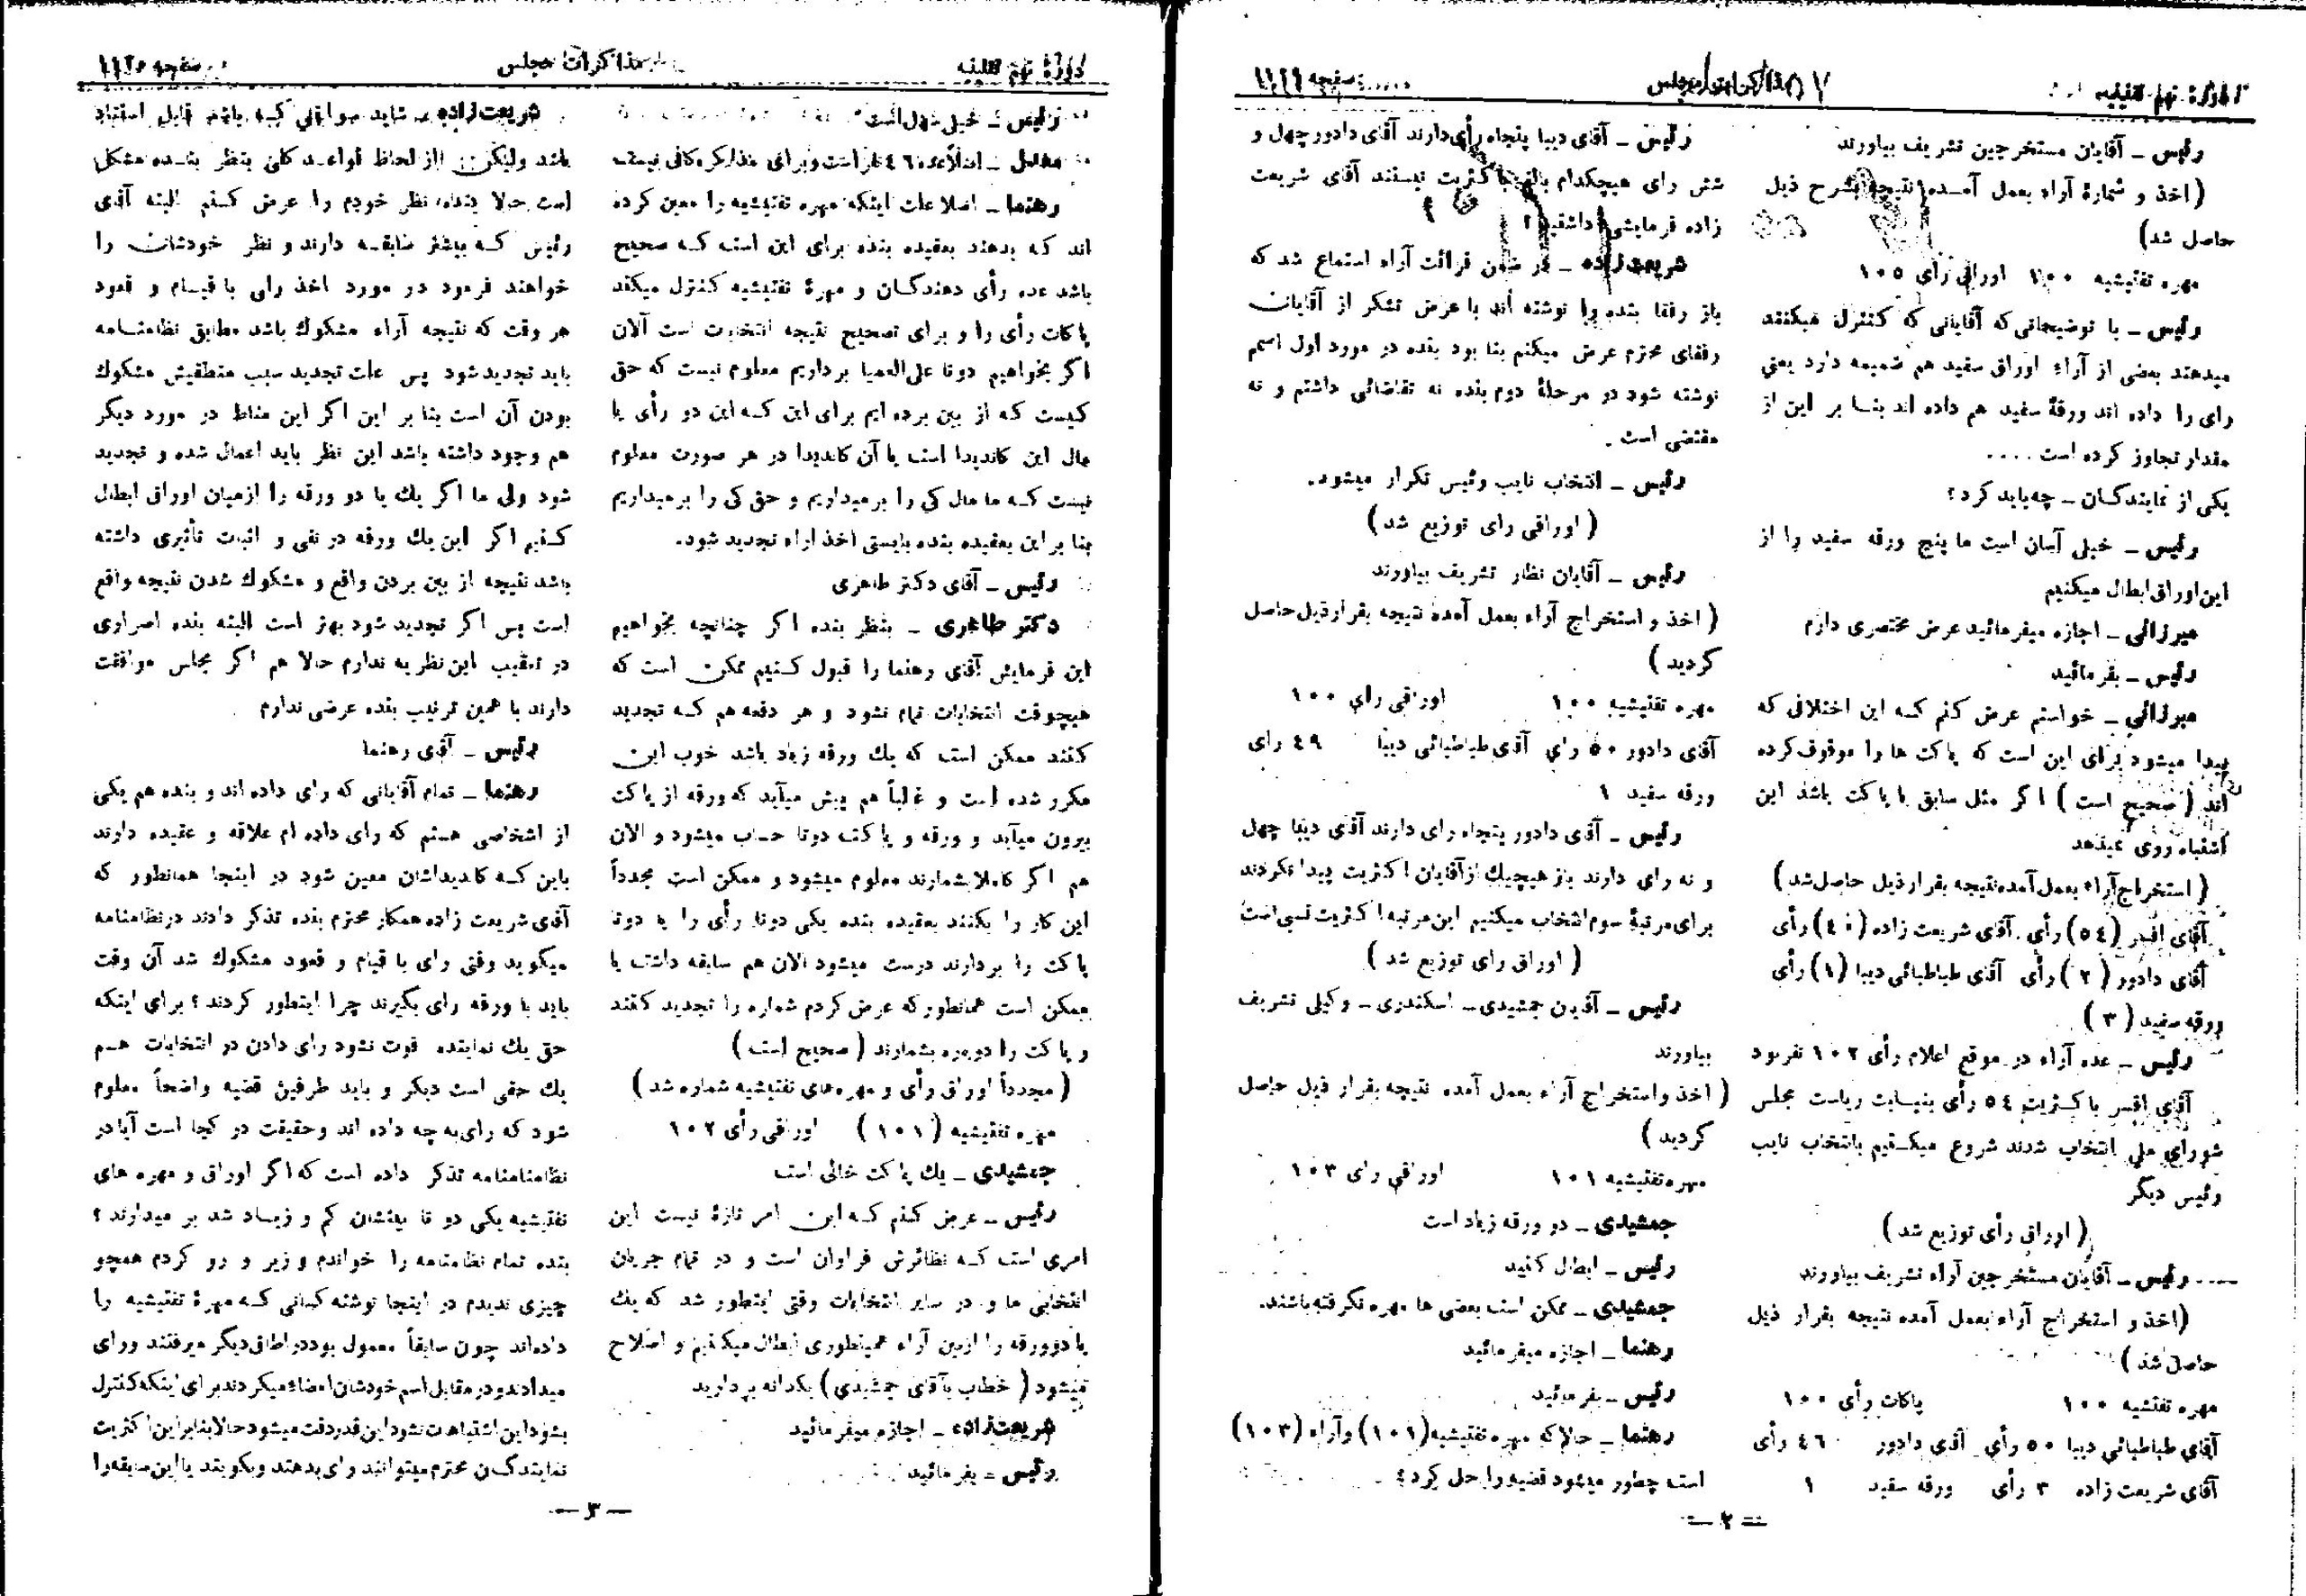 دورهٔ نهم تقنینیه
مذاکرات مجلس
صفحه
رئیس ـ آقایان مستخرجین تشریف بیاورند
(اخذ و شمارهٔ آراء بعمل آمده نتیجه بشرح ذیل
حاصل شد)
مهره تفتیشیه ۱۰۰ اوراق رأی ۱۰۵
رئیس ـ با توضیحاتی که آقایانی که کنترل میکنند
میدهند بعضی از آراء اوراق سفید هم ضمیمه دارد یعنی
رای را داده اند ورقهٔ سفید هم داده اند بنا بر این از
مقدار تجاوز کرده است ....
یکی از نمایندگان ـ چه باید کرد؟
رئیس ـ خیلی آسان است ما پنج ورقه سفید را از
این اوراق ابطال میکنیم
میرزائی ـ اجازه میفرمائید عرض مختصری دارم
رئیس ـ بفرمائید
میرزائی ـ خواستم عرض کنم که این اختلافی که
پیدا میشود برای این است که پاکت ها را موقوف کرده
اند (صحیح است) اگر مثل سابق با پاکت باشد این
اشتباه روی نمیدهد
(استخراج آراء بعمل آمده نتیجه بقرار ذیل حاصل شد)
آقای افسر (۵٤) رأی آقای شریعت زاده (٤۰) رأی
آقای دادور (۲) رأی آقای طباطبائی دیبا (۱) رأی
ورقه سفید (۳)
رئیس ـ عده آراء در موقع اعلام رأی ۱۰۲ نفر بود
آقای افسر با کثریت ۵٤ رأی بنیابت ریاست مجلس
شورای ملی انتخاب شدند شروع میکنیم بانتخاب نایب
رئیس دیگر
(اوراق رأی توزیع شد)
رئیس ـ آقایان مستخرجین آراء تشریف بیاورند
(اخذ و استخراج آراء بعمل آمده نتیجه بقرار ذیل
حاصل شد)
مهره تفتیشیه ۱۰۰ پاکات رأی ۱۰۰
آقای طباطبائی دیبا ۵۰ رأی آقای دادور ٤٦ رأی
آقای شریعت زاده ۳ رأی ورقه سفید ۱
رئیس ـ آقای دیبا پنجاه رأی دارند آقای دادور چهل و
شش رای هیچکدام بالغ با کثریت نیستند آقای شریعت
زاده فرمایشی داشتید؟
شریعت زاده ـ در ضمن قرائت آراء استماع شد که
باز رفقا بنده را نوشته اند با عرض تشکر از آقایان
رفقای محترم عرض میکنم بنا بود بنده در مورد اول اسم
نوشته شود در مرحلهٔ دوم بنده نه تقاضائی داشتم و نه
مقتضی است .
رئیس ـ انتخاب نایب رئیس تکرار میشود.
(اوراق رای توزیع شد)
رئیس ـ آقایان نظار تشریف بیاورند
(اخذ و استخراج آراء بعمل آمده نتیجه بقرار ذیل حاصل
گردید)
مهره تفتیشیه ۱۰۰ اوراق رای ۱۰۰
آقای دادور ۵۰ رای آقای طباطبائی دیبا ٤۹ رای
ورقه سفید ۱
رئیس ـ آقای دادور پنجاه رای دارند آقای دیبا چهل
و نه رای دارند باز هیچیک از آقایان اکثریت پیدا نکردند
برای مرتبهٔ سوم انتخاب میکنیم این مرتبه اکثریت نسبی است
(اوراق رای توزیع شد)
رئیس ـ آقایان جمشیدی ـ اسکندری ـ وکیلی تشریف
بیاورند
(اخذ و استخراج آراء بعمل آمده نتیجه بقرار ذیل حاصل
گردید)
مهره تفتیشیه ۱۰۱ اوراق رای ۱۰۳
جمشیدی ـ دو ورقه زیاد است
رئیس ـ ابطال کنید
جمشیدی ـ ممکن است بعضی ها مهره نگرفته باشند.
رهنما ـ اجازه میفرمائید
رئیس ـ بفرمائید
رهنما ـ حالا که مهره تفتیشیه (۱۰۱) و آراء (۱۰۳)
است چطور میشود قضیه را حل کرد؟
— ۲ —
دورهٔ نهم تقنینیه
مذاکرات مجلس
صفحه
رئیس ـ خیلی سهل است
ـ اصلاً عده ٤٦ نفر است و برای مذاکره کافی نیست
رهنما ـ اصلا علت اینکه مهره تفتیشیه را معین کرده
اند که بدهند بعقیده بنده برای این است که صحیح
باشد عده رأی دهندگان و مهرهٔ تفتیشیه کنترل میکند
پاکات رأی را و برای تصحیح نتیجه انتخابات است الان
اگر بخواهیم دوتا علی العمیا برداریم معلوم نیست که حق
کیست که از بین برده ایم برای این که این دو رأی یا
مال این کاندیدا است یا آن کاندیدا در هر صورت معلوم
نیست که ما مال کی را برمیداریم و حق کی را برمیداریم
بنا بر این بعقیده بنده بایستی اخذ اراء تجدید شود.
رئیس ـ آقای دکتر طاهری
دکتر طاهری ـ بنظر بنده اگر چنانچه بخواهیم
این فرمایش آقای رهنما را قبول کنیم ممکن است که
هیچوقت انتخابات تمام نشود و هر دفعه هم که تجدید
کنند ممکن است که یک ورقه زیاد باشد خوب این
مکرر شده است و غالباً هم پیش میآید که ورقه از پاکت
بیرون میآید و ورقه و پاکت دوتا حساب میشود و الان
هم اگر کاملا بشمارند معلوم میشود و ممکن است مجدداً
این کار را بکنند بعقیده بنده یکی دوتا رأی را یا دوتا
پاکت را بردارند درست میشود الان هم سابقه داشت یا
ممکن است همانطور که عرض کردم شماره را تجدید کنند
و پاکت را دوباره بشمارند (صحیح است)
(مجدداً اوراق رأی و مهره های تفتیشیه شماره شد)
مهره تفتیشیه (۱۰۱) اوراق رأی ۱۰۲
جمشیدی ـ یک پاکت خالی است
رئیس ـ عرض کنم که این امر تازهٔ نیست این
امری است که نظائرش فراوان است و در تمام جریان
انتخابی ما و در سایر انتخابات وقتی اینطور شد که یک
یا دو ورقه را ازین آراء همینطوری ابطال میکنیم و اصلاح
میشود (خطاب بآقای جمشیدی) یکدانه بردارید
شریعت زاده ـ اجازه میفرمائید
رئیس ـ بفرمائید
شریعت زاده ـ شاید سوابقی که باشد قابل استناد
باشد ولیکن از لحاظ قواعد کلی بنظر بنده مشکل
است حالا بنده نظر خودم را عرض کنم البته آقای
رئیس که بیشتر سابقه دارند و نظر خودشان را
خواهند فرمود در مورد اخذ رای با قیام و قعود
هر وقت که نتیجه آراء مشکوک باشد مطابق نظامنامه
باید تجدید شود پس علت تجدید سبب منطقیش مشکوک
بودن آن است بنا بر این اگر این مناط در مورد دیگر
هم وجود داشته باشد این نظر باید اعمال شده و تجدید
شود ولی ما اگر یک یا دو ورقه را از میان اوراق ابطال
کنیم اگر این یک ورقه در نفی و اثبات تأثیری داشته
باشد نتیجه از بین بردن واقع و مشکوک شدن نتیجه واقع
است پس اگر تجدید شود بهتر است البته بنده اصراری
در تعقیب این نظریه ندارم حالا هم اگر مجلس موافقت
دارند با همین ترتیب بنده عرضی ندارم
رئیس ـ آقای رهنما
رهنما ـ تمام آقایانی که رای داده اند و بنده هم یکی
از اشخاصی هستم که رای داده ام علاقه و عقیده دارند
باین که کاندیداشان معین شود در اینجا همانطور که
آقای شریعت زاده همکار محترم بنده تذکر دادند در نظامنامه
میگوید وقتی رای با قیام و قعود مشکوک شد آن وقت
باید با ورقه رای بگیرند چرا اینطور کردند؟ برای اینکه
حق یک نماینده فوت نشود رای دادن در انتخابات هم
یک حقی است دیگر و باید طرفین قضیه واضحاً معلوم
شود که رای به چه داده اند و حقیقت در کجا است آیا در
نظامنامه تذکر داده است که اگر اوراق و مهره های
تفتیشیه یکی دو تا بینشان کم و زیاد شد بر میدارند؟
بنده تمام نظامنامه را خواندم و زیر و رو کردم همچو
چیزی ندیدم در اینجا نوشته کسانی که مهرهٔ تفتیشیه را
داده اند چون سابقاً معمول بود در اطاق دیگر میرفتند و رای
میدادند و در مقابل اسم خودشان امضاء میکردند برای اینکه کنترل
بشود این اشتباهات نشود این قدر دقت میشود حالا بنابراین اکثریت
نمایندگان محترم میتوانند رای بدهند و بگویند یا این سابقه را
— ۳ —